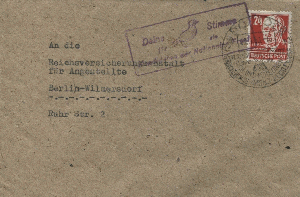 Deine Stimme
24
DEUTSCHE POST
An die
Reichsversicherungsanstalt
für Angestellte
Berlin-Wilmersdorf
Ruhr Str. 2